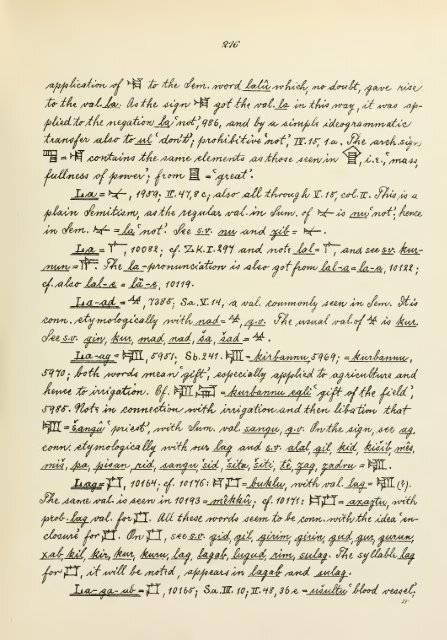 216
application of 𒆷 to the Sem. word lalû which, no doubt, gave rise
to the val. la. As the sign 𒆷 got the val. la in this way, it was ap-
plied to the negation la 'not', 986, and by a simple ideogrammatic
transfer also to ul 'don't'; prohibitive 'not', IV. 15, 1a. The arch. sign
= contains the same elements as those seen in , i.e., 'mass,
fullness of power'; from = 'great'.
La = , 1959; II. 47, 8 c; also all through V. 15, col. II. This is a
plain Semitism, as the regular val. in Sum. of is nu 'not'; hence
in Sem. = la 'not'. See s.v. nu and zib = .
La = , 10082; cf. Z.K. I. 297 and note lal = , and see s.v. kur-
nun = . The la-pronunciation is also got from lal-a = la-a, 10122;
cf. also lal-e = lā-e, 10119.
La-ad = , 7385, Sa. V. 14, a val. commonly seen in Sem. It is
conn. etymologically with nad = , q.v. The usual val. of is kur.
See s.v. gin, kur, mad, nad, ša, šad = .
La-ag = , 5951; Sb. 241. = kirbannu, 5969; = kurbannu,
5970; both words mean 'gift', especially applied to agriculture and
hence to irrigation. Cf. = kurbannu eqli 'gift of the field',
5985. Note in connection with irrigation and then libation that
= šangû 'priest', with Sum. val. sangu, q.v. On the sign, see ag,
conn. etymologically with nus lag and s.v. alal, gil, kid, kišib, mes,
miš, pa, pisan, rid, sangu, šid, šita, šiti, tê, zag, zadru = .
Lag = , 10164; cf. 10176: = kuklu, with val. lag = (?).
The same val. is seen in 10193 = mêkku; cf. 10171: = azaztu, with
prob. lag val. for . All these words seem to be conn. with the idea 'en-
closure' for . On , see s.v. gid, gil, girim, girin, gud, gur, gurun,
xab, kil, kir, kur, kuru, lag, lagab, lugud, rim, sulag. The syllable lag
for , it will be noted, appears in lagab and sulag.
La-ga-ab = , 10165; Sa. III. 10; II. 48, 36 e = usultu 'blood vessel;